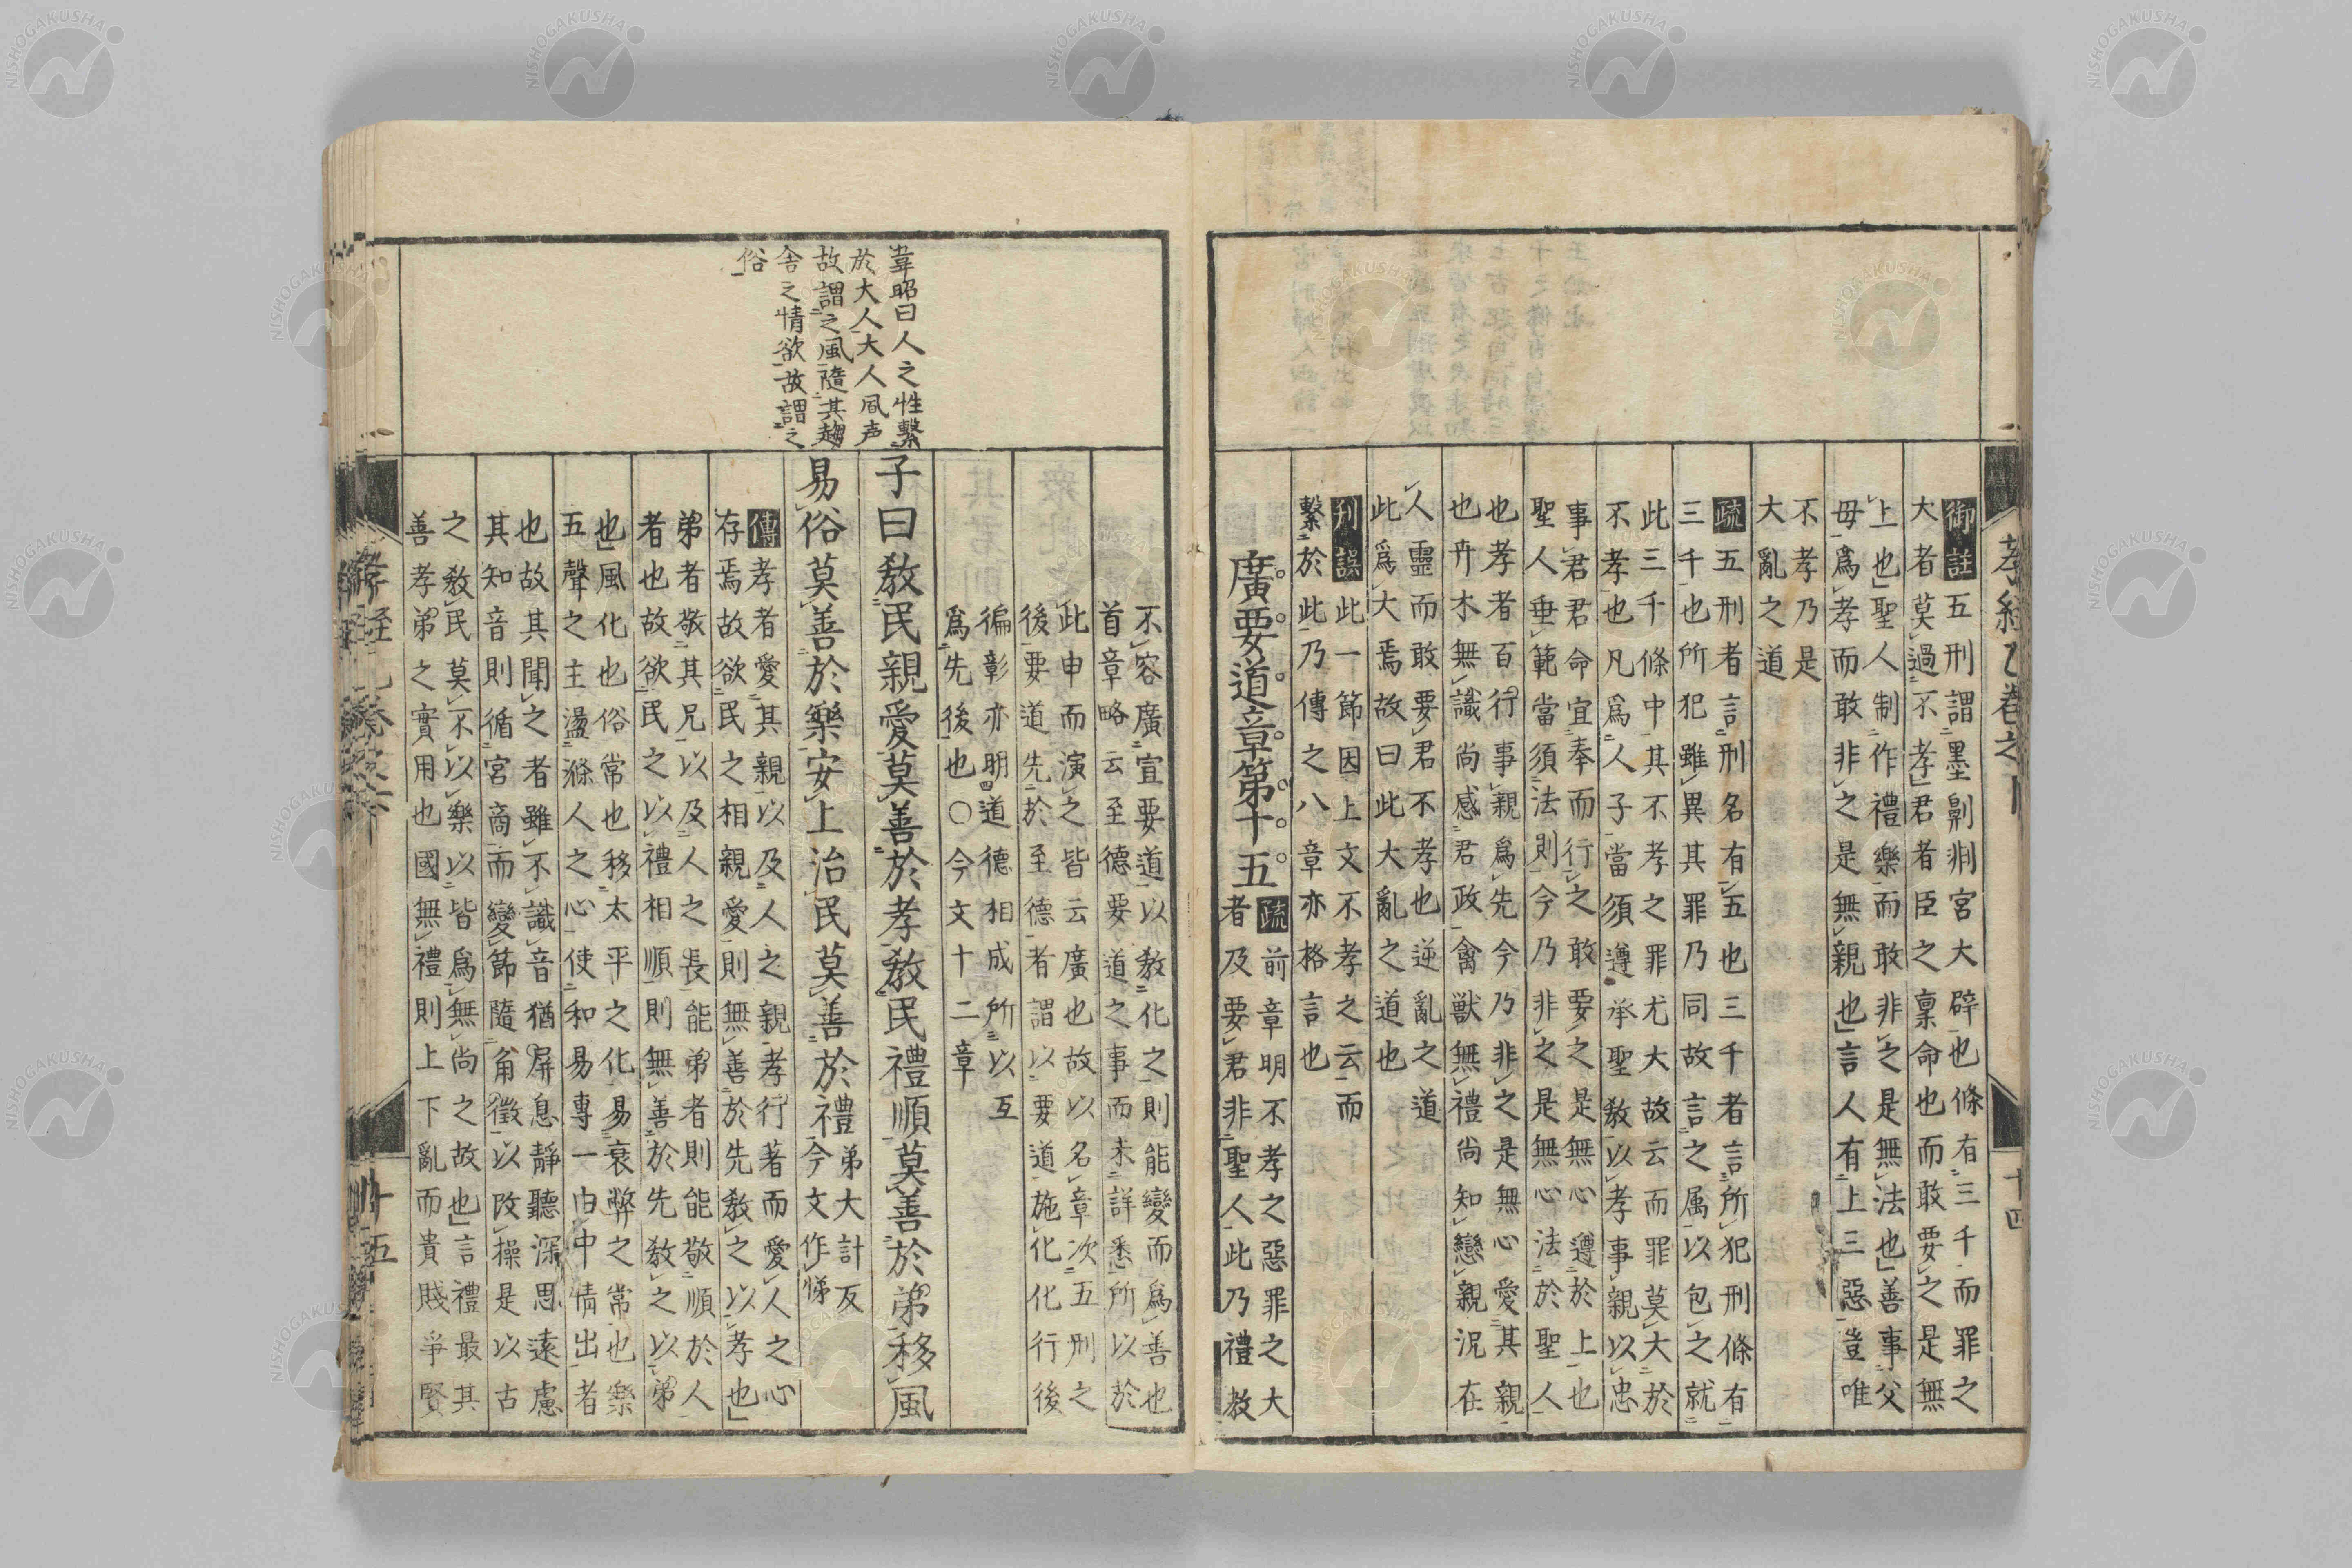 御註五刑謂墨劓剕宮大辟也條有三千而罪之
大者莫過不孝君者臣之稟命也而敢要之是無
上也聖人制作禮樂而敢非之是無法也善事父
母爲孝而敢非之是無親也言人有上三惡豈唯
不孝乃是
大亂之道
疏五刑者言刑名有五也三千者言所犯刑條有
三千也所犯雖異其罪乃同故言之属以包之就
此三千條中其不孝之罪尤大故云而罪莫大於
不孝也凡爲人子當須遵承聖教以孝事親以忠
事君君命宜奉而行之敢要之是無心遵於上也
聖人垂範當須法則今乃非之是無心法於聖人
也孝者百行事親爲先今乃非之是無心愛其親
也卉木無識尚感君政禽獸無禮尚知戀親況在
人靈而敢要君不孝也逆亂之道
此爲大焉故曰此大亂之道也
刋誤此一節因上文不孝之云而
繫於此乃傳之八章亦格言也
廣要道章第十五
疏前章明不孝之惡罪之大
者及要君非聖人此乃禮教
孝經
十四
不容廣宣要道以教化之則能變而爲善也
首章略云至德要道之事而未詳悉所以於
此申而演之皆云廣也故以名章次五刑之
後要道先於至德者謂以要道施化化行後
徧彰亦明道德相成所以互
爲先後也○今文十二章
子曰教民親愛莫善於孝教民禮順莫善於弟移風
易俗莫善於樂安上治民莫善於禮
弟大計反
今文作悌
韋昭曰人之性繫
於大人大人風声
故謂之風隨其趨
舍之情欲故謂之
俗
傳孝者愛其親以及人之親孝行著而愛人之心
存焉故欲民之相親愛則無善於先教之以孝也
弟者敬其兄以及人之長能弟者則能敬順於人
者也故欲民之以禮相順則無善於先教之以弟
也風化也俗常也移太平之化易衰弊之常也樂
五聲之主盪滌人之心使和易專一由中情出者
也故其聞之者雖不識音猶屏息靜聽深思遠慮
其知音則循宮商而變節隨角徵以改操是以古
之教民莫不以樂以皆爲無尚之故也言禮最其
善孝弟之實用也國無禮則上下亂而貴賤爭賢
十五